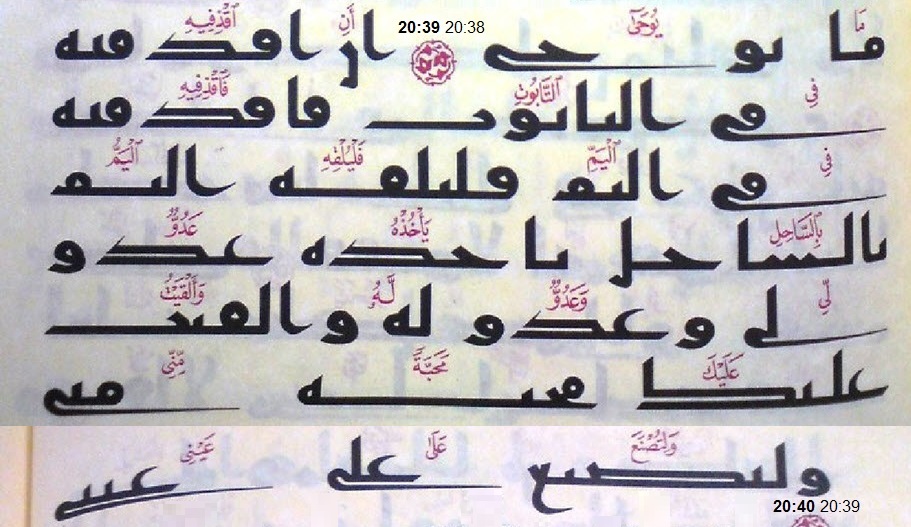 مَا يُوحَىٰٓ 20:39 20:38 أَنِ ٱقْذِفِيهِ
ما يوحى ان اقذفيه
فِي ٱلتَّابُوتِ فَٱقْذِفِيهِ
في التابوت فاقذفيه
فِي ٱلْيَمِّ فَلْيُلْقِهِ ٱلْيَمُّ
في اليم فليلقه اليم
بِٱلسَّاحِلِ يَأْخُذْهُ عَدُوٌّ
بالساحل ياخذه عدو
لِّي وَعَدُوٌّ لَّهُۥ وَأَلْقَيْتُ
لي وعدو له والقيت
عَلَيْكَ مَحَبَّةً مِّنِّي
عليك محبه مني
وَلِتُصْنَعَ عَلَىٰ عَيْنِي
ولتصنع على عيني
20:40 20:39